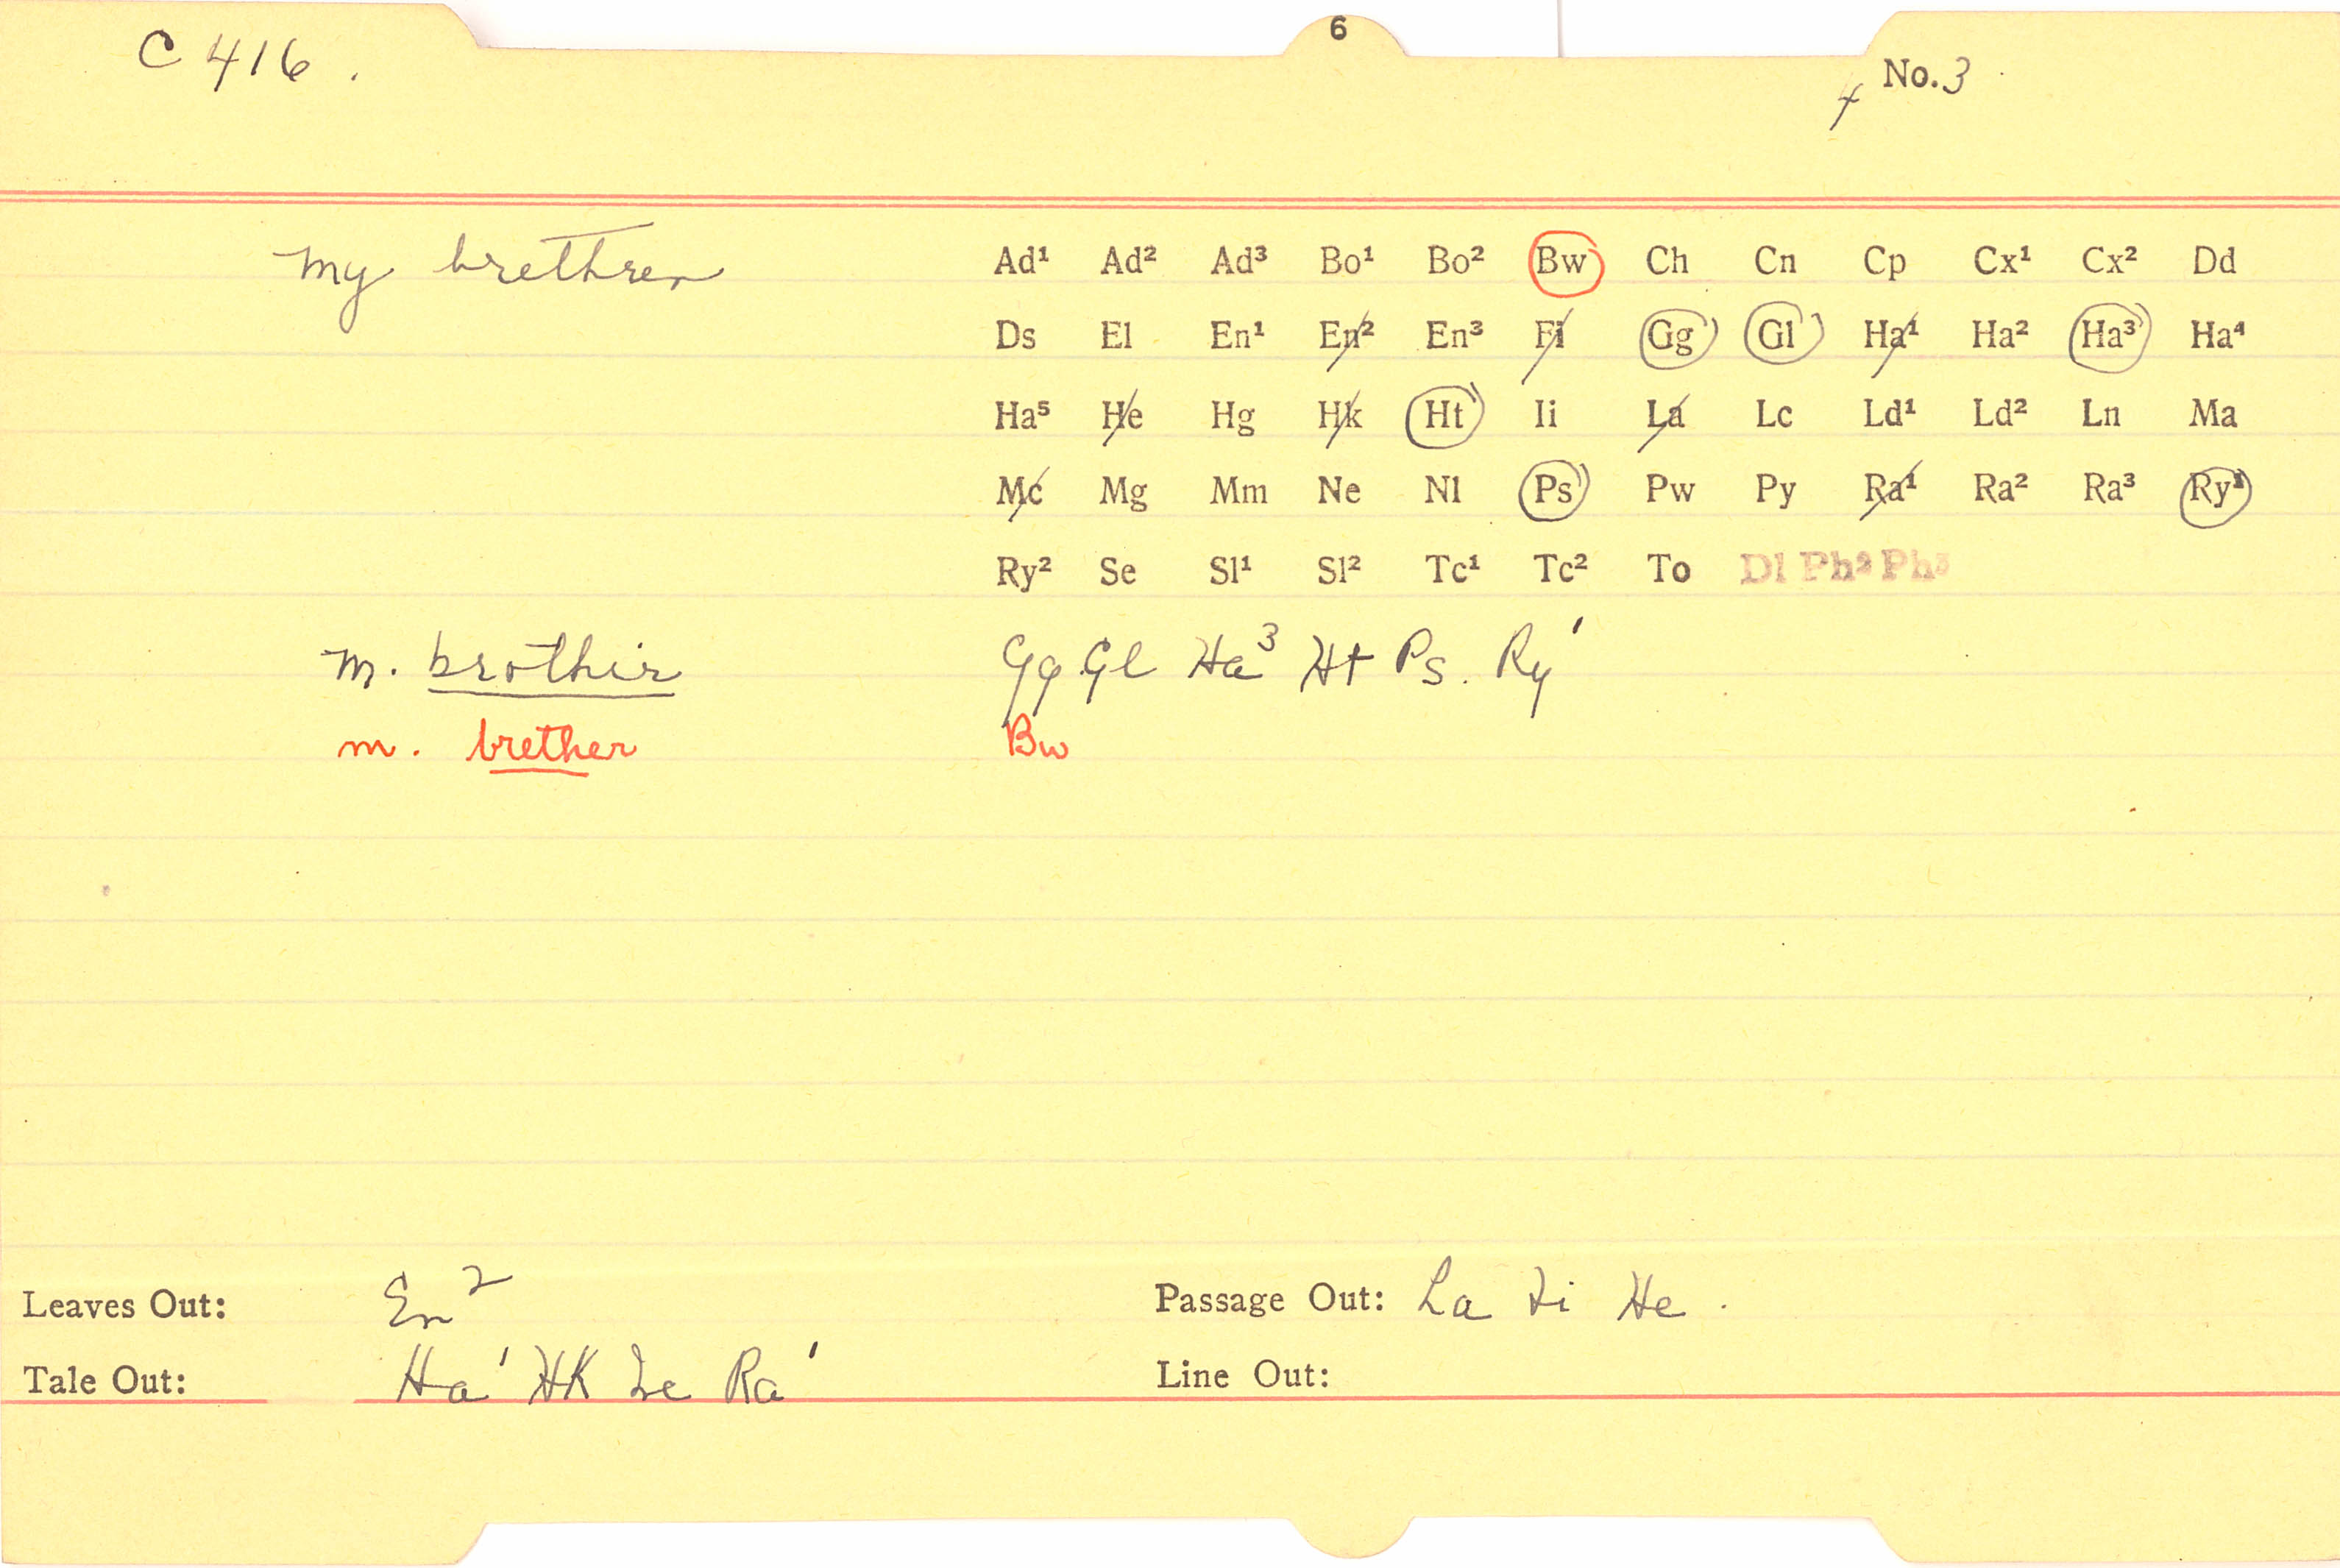 6
C 416.
No. 3
4
my brethren
Ad¹ Ad² Ad³ Bo¹ Bo² Bw Ch Cn Cp Cx¹ Cx² Dd
Ds El En¹ En² En³ Fi Gg Gl Ha¹ Ha² Ha³ Ha⁴
Ha⁵ He Hg Hk Ht Ii La Lc Ld¹ Ld² Ln Ma
Mc Mg Mm Ne Nl Ps Pw Py Ra¹ Ra² Ra³ Ry¹
Ry² Se Sl¹ Sl² Tc¹ Tc² To Dl Ph² Ph³
m. brothir Gg Gl Ha³ Ht Ps. Ry¹
m. brether Bw
Leaves Out: En² Passage Out: La Fi He.
Tale Out: Ha¹ Hk Mc Ra¹ Line Out: